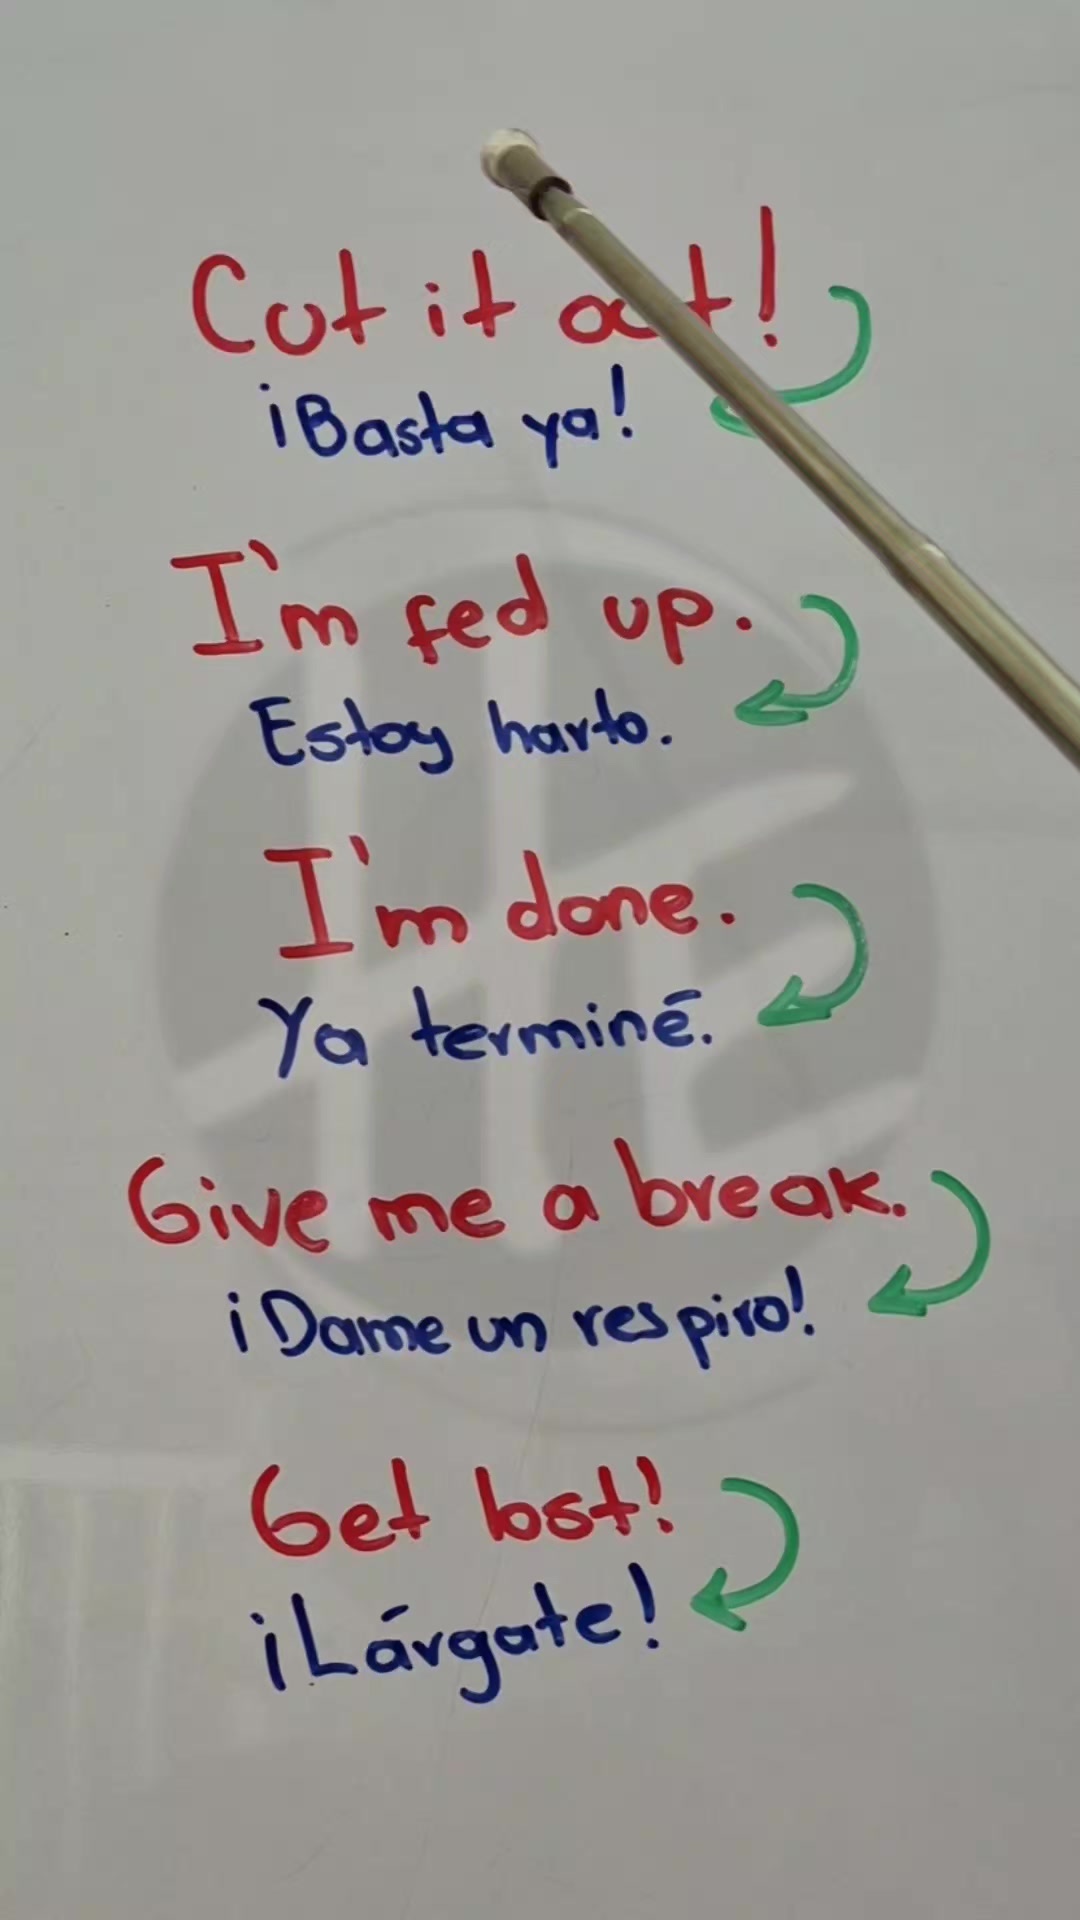 Cut it out!
¡Basta ya!
I'm fed up.
Estoy harto.
I'm done.
Ya terminé.
Give me a break.
¡Dame un respiro!
Get lost!
¡Lárgate!
HE